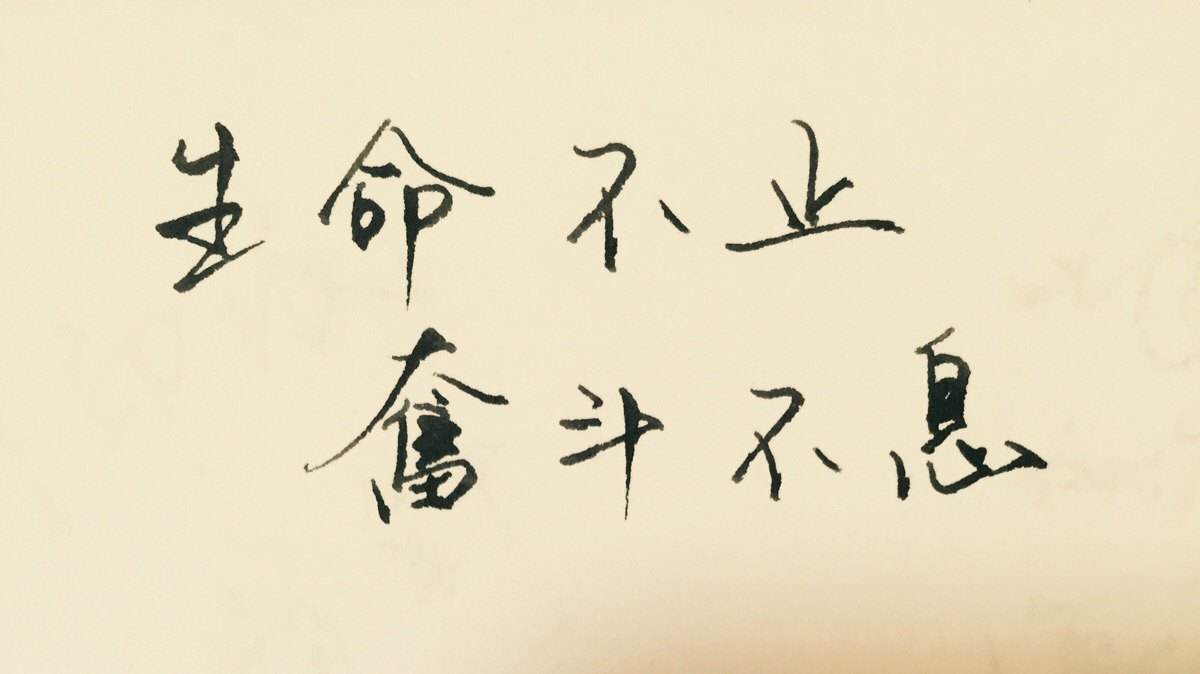 生命不止
奋斗不息